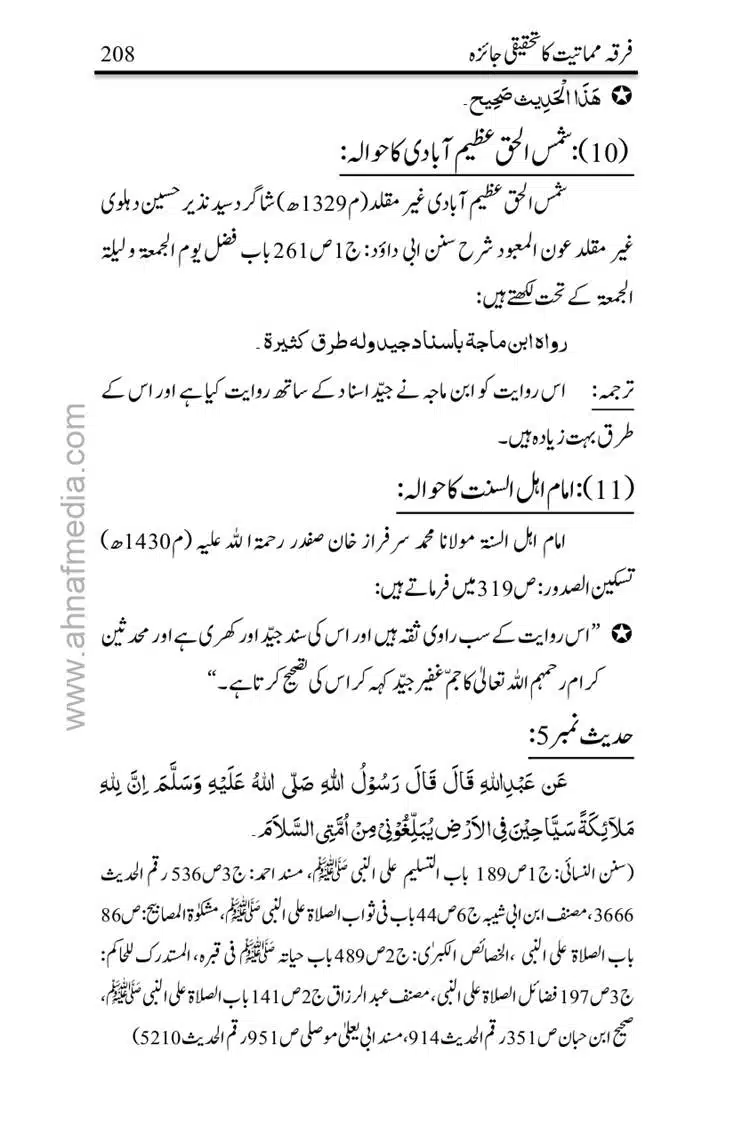 فرقہ مماتیت کا تحقیقی جائزہ 208
✪ هَذَا الْحَدِيث صَحِيح۔
(10): شمس الحق عظیم آبادی کا حوالہ:
شمس الحق عظیم آبادی غیر مقلد (م1329ھ) شاگرد سید نذیر حسین دہلوی
غیر مقلد عون المعبود شرح سنن ابی داؤد: ج1ص261 باب فضل یوم الجمعۃ و لیلۃ
الجمعۃ کے تحت لکھتے ہیں:
رواه ابن ماجة بأسناد جيد وله طرق كثيرة۔
ترجمہ: اس روایت کو ابن ماجہ نے جیّد اسناد کے ساتھ روایت کیا ہے اور اس کے
طرق بہت زیادہ ہیں۔
(11): امام اہل السنت کا حوالہ:
امام اہل السنۃ مولانا محمد سرفراز خان صفدر رحمۃ اللہ علیہ (م1430ھ)
تسکین الصدور: ص319 میں فرماتے ہیں:
✪ ”اس روایت کے سب راوی ثقہ ہیں اور اس کی سند جیّد اور کھری ہے اور محدثین
کرام رحمہم اللہ تعالیٰ کا جمّ غفیر جیّد کہہ کر اس کی تصحیح کرتا ہے۔“
حدیث نمبر 5:
عَن عَبْدِاللهِ قَالَ قَالَ رَسُوْلُ اللهِ صَلَّى اللهُ عَلَيْهِ وَسَلَّمَ اِنَّ لِلهِ
مَلَائِكَةً سَيَّاحِيْنَ فِي الْاَرْضِ يُبَلِّغُوْنِيْ مِنْ اُمَّتِي السَّلَامَ۔
(سنن النسائی: ج1ص189 باب التسلیم علی النبی ﷺ، مسند احمد: ج3ص536 رقم الحدیث
3666، مصنف ابن ابی شیبہ ج6ص44 باب فی ثواب الصلاۃ علی النبی ﷺ، مشکوٰۃ المصابیح: ص86
باب الصلاۃ علی النبی ،الخصائص الکبرٰی: ج2ص489 باب حیاتہ ﷺ فی قبرہ، المستدرک للحاکم:
ج3ص197 فضائل الصلاۃ علی النبی، مصنف عبد الرزاق ج2ص141 باب الصلاۃ علی النبی ﷺ،
صحیح ابن حبان ص351 رقم الحدیث 914، مسند ابی یعلیٰ موصلی ص951 رقم الحدیث 5210)
www.ahnafmedia.com